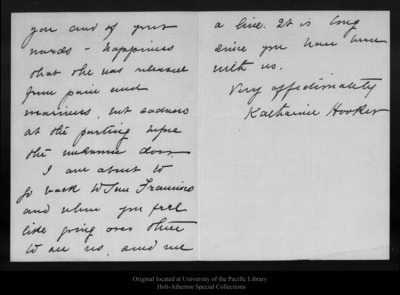 you and of your
words - happiness
that she was released
from pain and
weariness, but sadness
at the parting before
the unknown door.
I am about to
go back to San Francisco
and when you feel
like going over there
to see us, send me
a line. It is long
since you have been
with us.
Very affectionately
Katharine Hooker
Original located at University of the Pacific Library
Holt-Atherton Special Collections